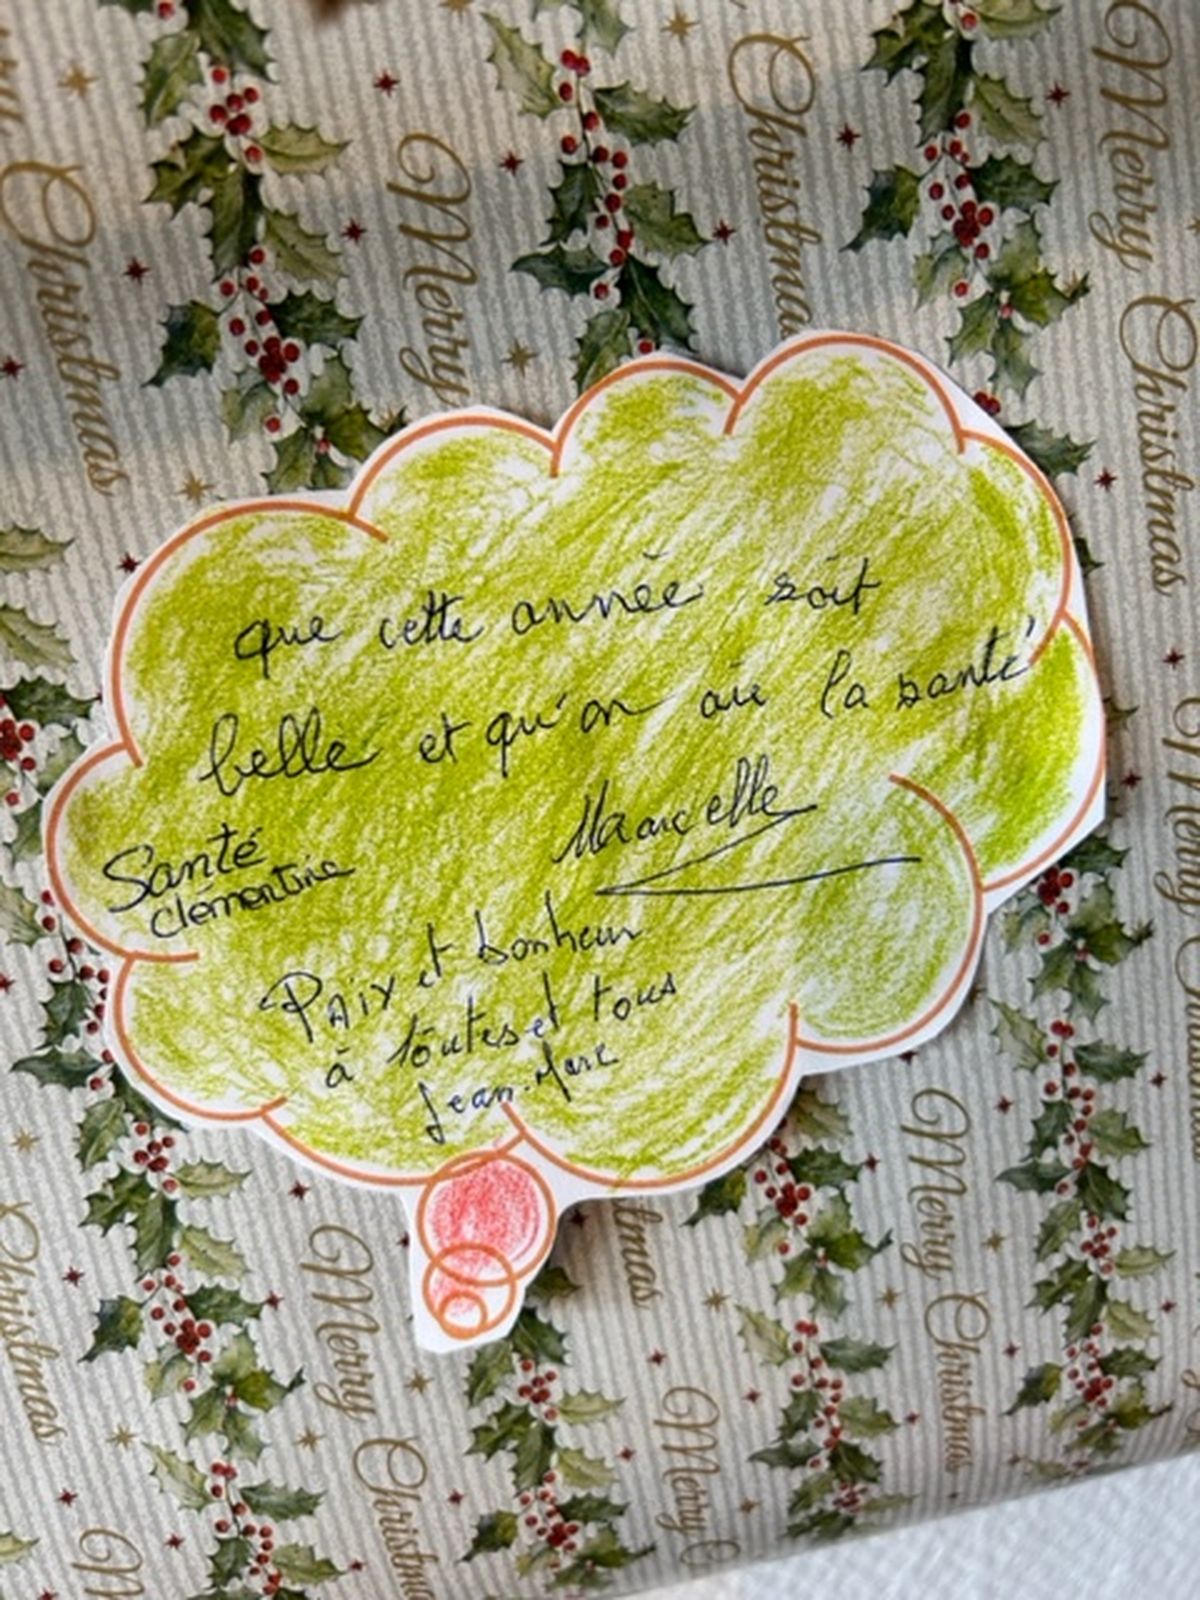 Merry Christmas
Merry Christmas
Merry Christmas
que cette année soit
belle et qu'on ait la santé
Marcelle
Santé
Clémentine
Paix et bonheur
à toutes et tous
Jean-Marc
Merry Christmas
Merry Christmas
Merry
Christmas
Christmas